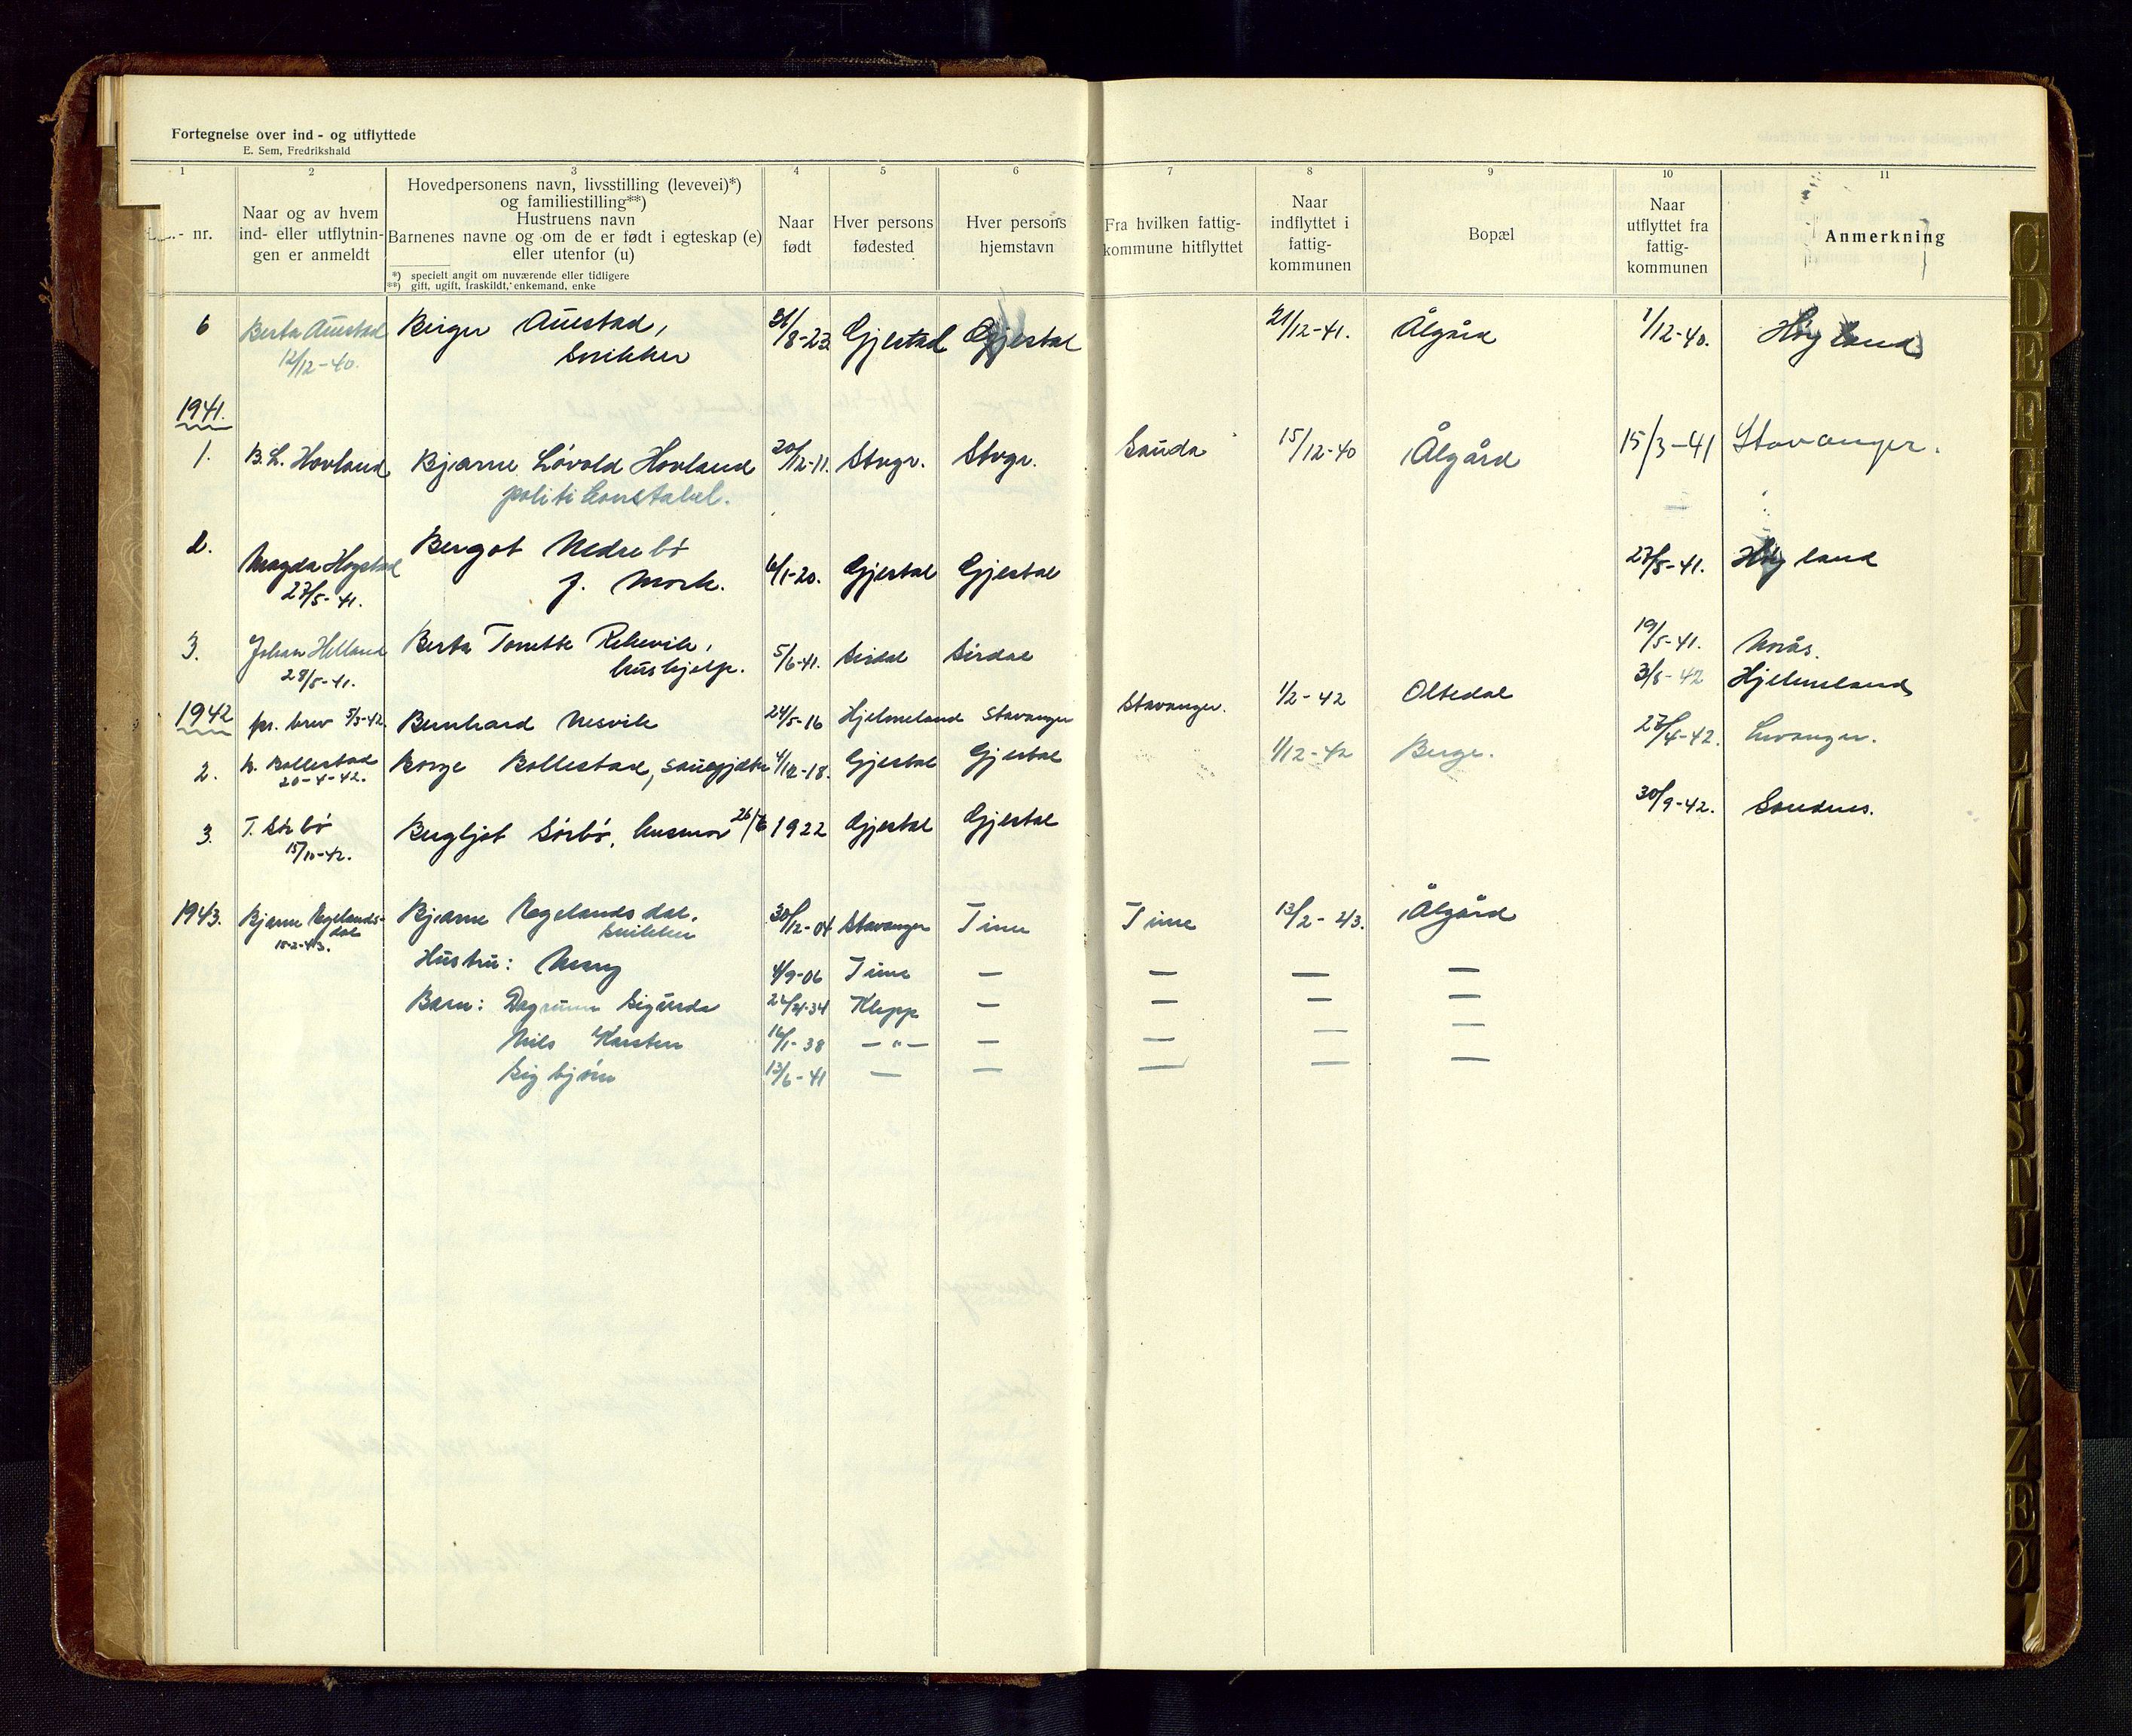 Fortegnelse over ind - og utflyttede
E. Sem, Fredrikshald
1 2 3 4 5 6 7 8 9 10 11
- nr.
Naar og av hvem
ind- eller utflytnin-
gen er anmeldt
Hovedpersonens navn, livsstilling (levevei)*)
og familiestilling**)
Hustruens navn
Barnenes navne og om de er født i egteskap (e)
eller utenfor (u)
*) specielt angit om nuværende eller tidligere
**) gift, ugift, fraskildt, enkemand, enke
Naar
født
Hver persons
fødested
Hver persons
hjemstavn
Fra hvilken fattig-
kommune hitflyttet
Naar
indflyttet i
fattig-
kommunen
Bopæl
Naar
utflyttet fra
fattig-
kommunen
Anmerkning
6 Berta Auestad Birger Auestad, 31/8-23 Gjestal Gjestal 21/12-41. Ålgård 1/12-40. Høyland
12/12-40. Snikker
1941.
1. B.L. Hovland Bjarne Løvold Hovland 20/12-11. Stvgr. Stvgr. Sauda 15/12-40 Ålgård 15/3-41 Stavanger.
politikonstabel.
2. Magda Høgstad Bergot Nedrebø
27/5-41. f. Mork. 6/1-20. Gjestal Gjestal 27/5-41. Høyland
3. Johan Helland Berta Tomette 5/6-41. Sirdal Sirdal 19/5-41.
28/5-41. hushjelp.
1942 pr. brev 5/3-42. Bernhard Nesvik 24/5-16 Hjelmeland Stavanger Stavanger. 1/2-42 Oltedal 3/5-42 Hjelmeland
2. Bollestad Borge Bollestad, sauegjæter 4/12-18. Gjestal Gjestal 1/12-42 Berge. 27/4-42. Levanger.
20-4-42.
3. T. Sørbø Bergljot Sørbø, husmor 26/6 1922 Gjestal Gjestal 30/9-42. Sandnes.
15/10-42.
1943. Bjarne Egelands- Bjarne Egelandsdal, 30/12-04 Stavanger Time Time 13/2-43. Ålgård
dal snikker
15-2-43.
Hustru: Mary 4/9-06 Time — — — —
Barn: Dagrunn Sigurda 24/4-34 Klepp — — — —
Nils Karsten 16/1-38 —"— — — — —
Sigbjørn 13/6-41 — — — — —
O
D
E
F
G
H
I
J
K
L
M
N
O
P
Q
R
S
T
U
W
X
Y
Z
Æ
Ø